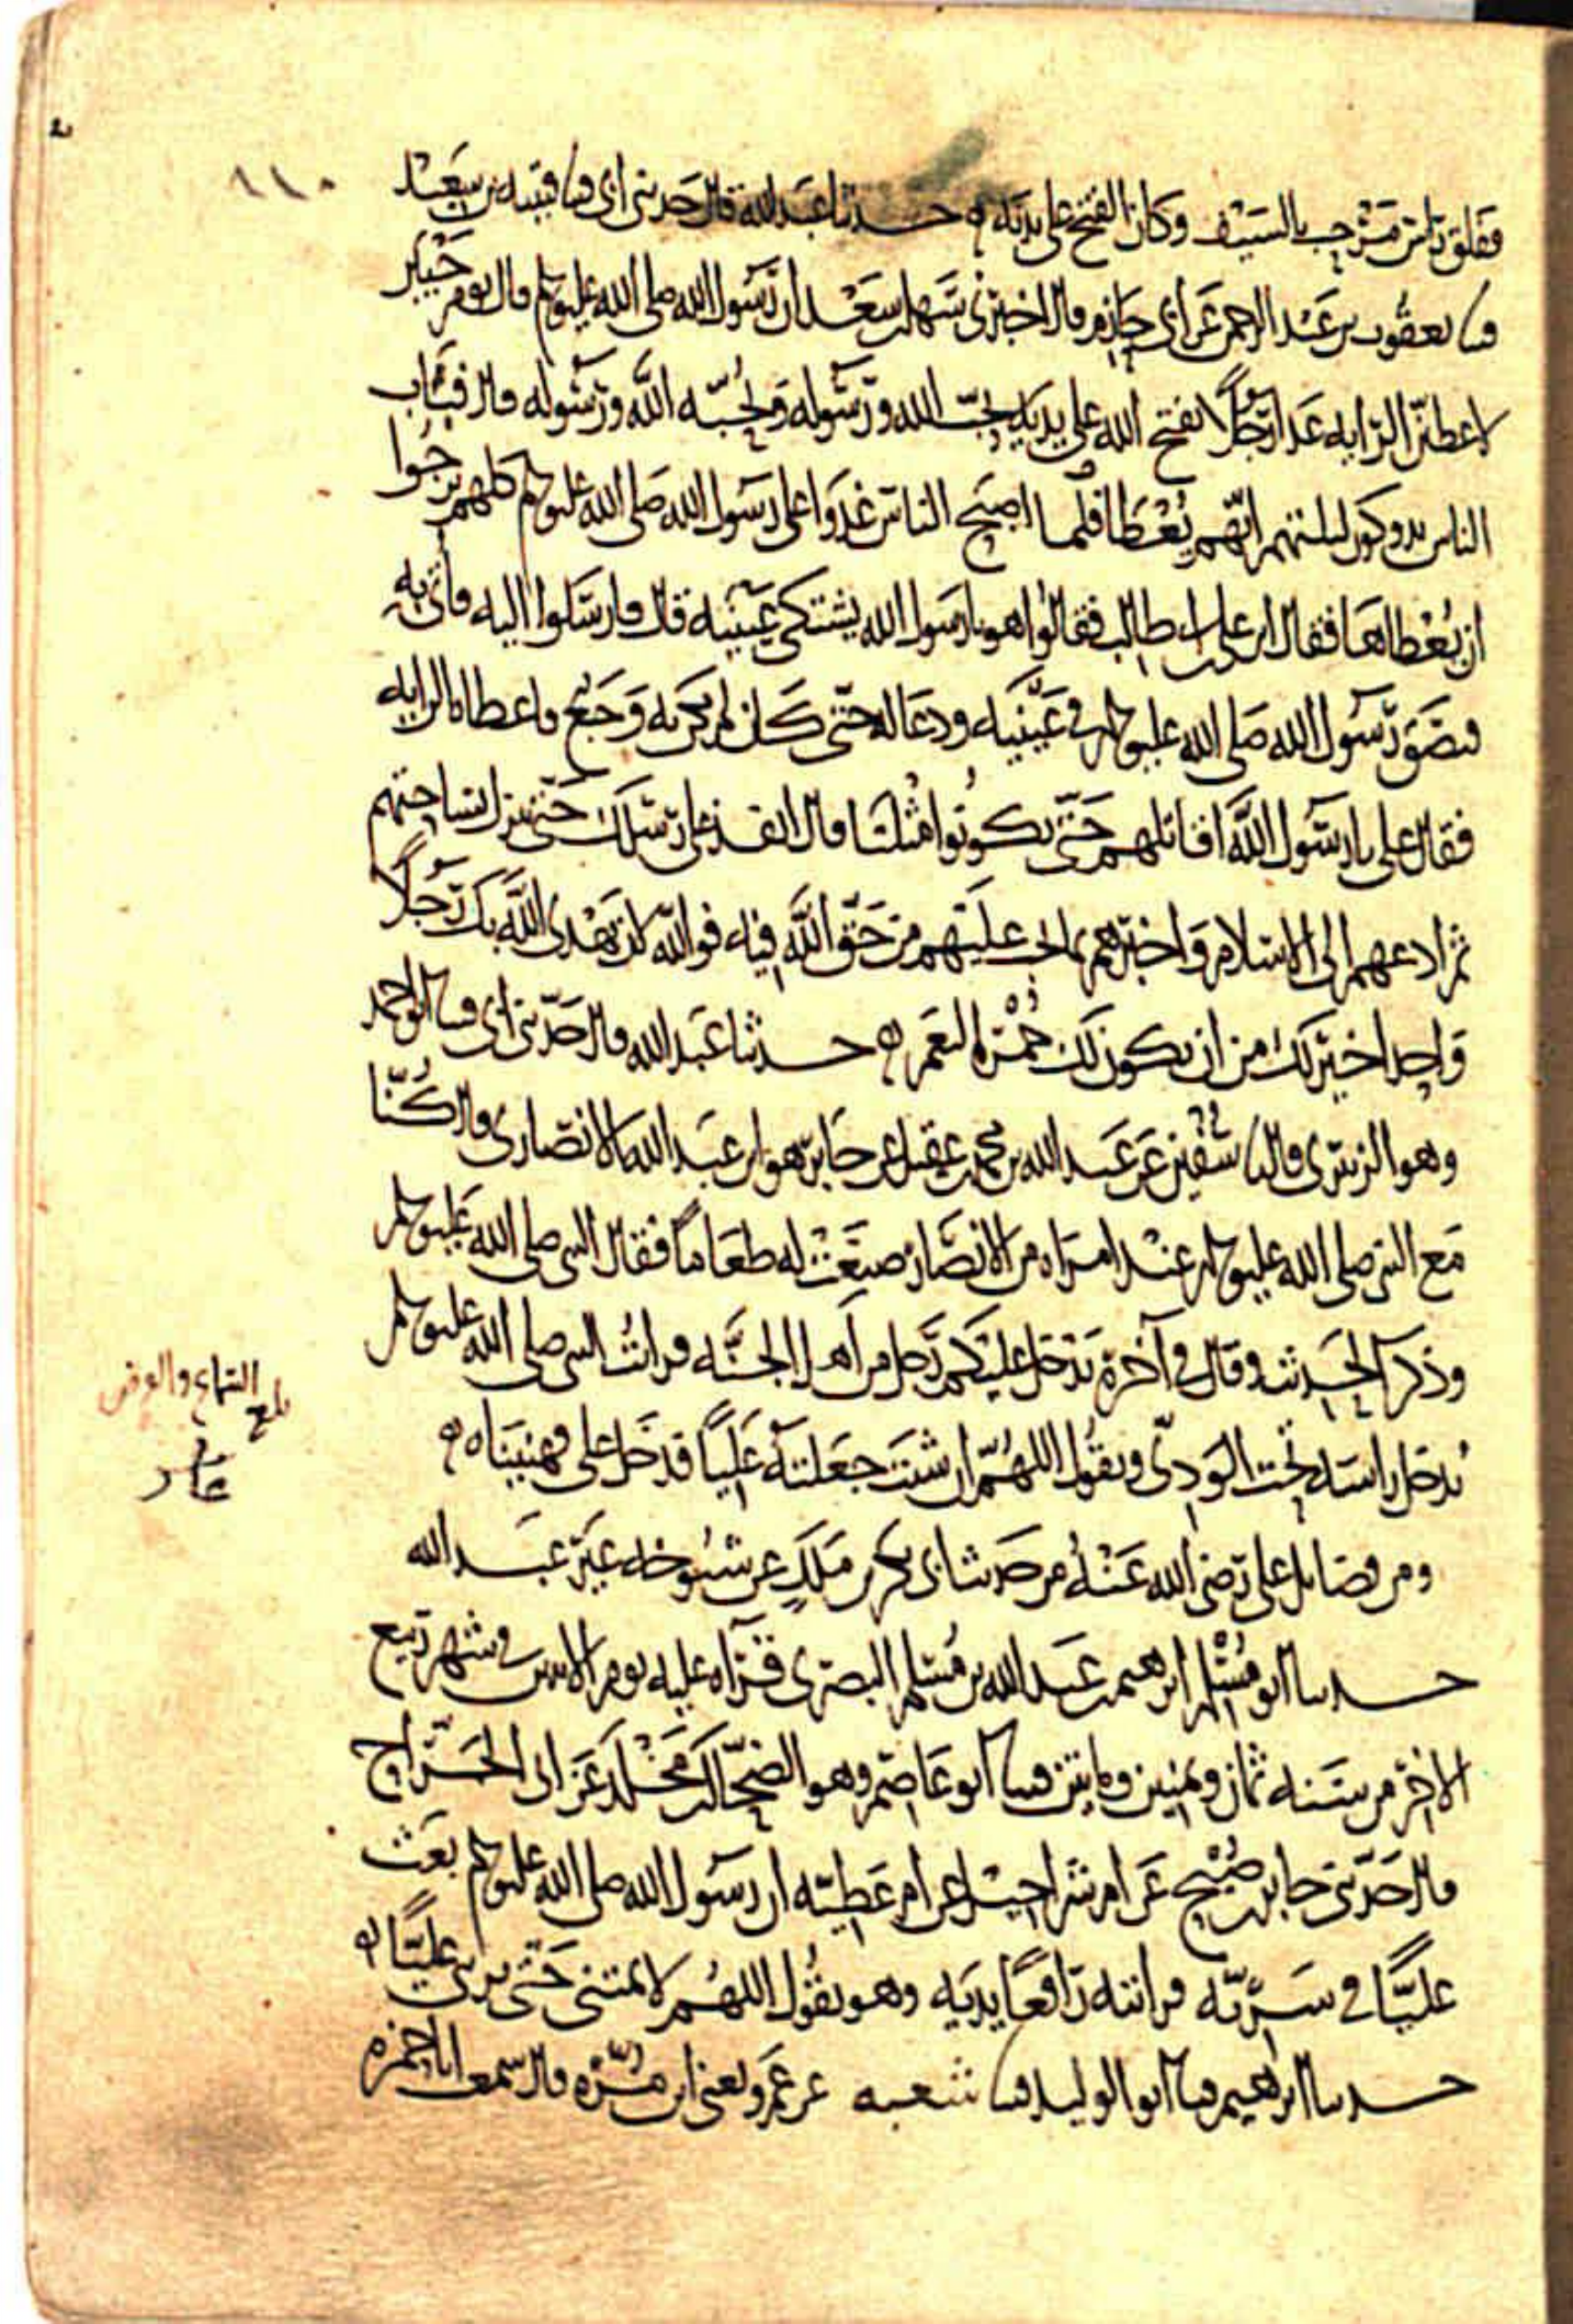 ١١٠
ففلق راس مرحب بالسيف وكان الفتح على يديه ه حدثنا عبد الله قال حدثني ابي قثنا قتيبة بن سعيد
قثنا يعقوب بن عبد الرحمن عن ابي حازم قال اخبرني سهل بن سعد ان رسول الله صلى الله عليه وسلم قال يوم خيبر
لاعطين الراية غدا رجلا يفتح الله على يديه يحب الله ورسوله ويحبه الله ورسوله قال فبات
الناس يدوكون ليلتهم ايهم يعطا فلما اصبح الناس غدوا على رسول الله صلى الله عليه وسلم كلهم يرجوا
ان يعطاها فقال اين علي بن ابي طالب فقالوا هو يا رسول الله يشتكي عينيه قال فارسلوا اليه فاتي به
فبصق رسول الله صلى الله عليه وسلم في عينيه ودعا له حتى كان لم يكن به وجع فاعطاه الراية
فقال علي يا رسول الله اقاتلهم حتى يكونوا مثلنا قال انفذ على رسلك حتى تنزل بساحتهم
ثم ادعهم الى الاسلام واخبرهم بما يجب عليهم من حق الله فيه فوالله لان يهدي الله بك رجلا
واحدا خير لك من ان يكون لك حمر النعم ه حدثنا عبد الله قال حدثني ابي قثنا ابو احمد
وهو الزبيري قال نا سفين عن عبد الله بن محمد بن عقيل عن جابر هو ابن عبد الله الانصاري قال كنا
مع النبي صلى الله عليه وسلم عند امراة من الانصار صنعت له طعاما فقال النبي صلى الله عليه وسلم
وذكر الحديث وقال في آخره يدخل عليكم رجل من اهل الجنة فرايت النبي صلى الله عليه وسلم
يدخل راسه تحت الودي ويقول اللهم ان شئت جعلته عليا فدخل علي فهنيناه ه
بلغ السماع والعرض
ومن فضايل علي رضي الله عنه من حديث ابي بكر بن ملك عن شيوخه غير عبد الله
حدثنا ابو مسلم ابرهيم بن عبد الله بن مسلم البصري قراه عليه يوم الاثنين في شهر ربيع
الاخر من سنة ثمان وثمنين ومايتين قثنا ابو عاصم وهو الضحاك بن مخلد عن ابي الجراح
قال حدثني جابر بن صبيح عن ام شراحيل عن ام عطية ان رسول الله صلى الله عليه وسلم بعث
عليا في سرية فرايته رافعا يديه وهو يقول اللهم لا تمتني حتى تريني عليا ه
حدثنا ابرهيم قثنا ابو الوليد قثنا شعبه عن عمرو يعني ابن مره قال سمعت ابا حمزه